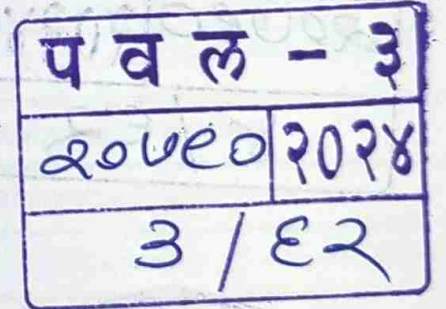 प व ल - ३
२०७९० २०२४
३ / ६२